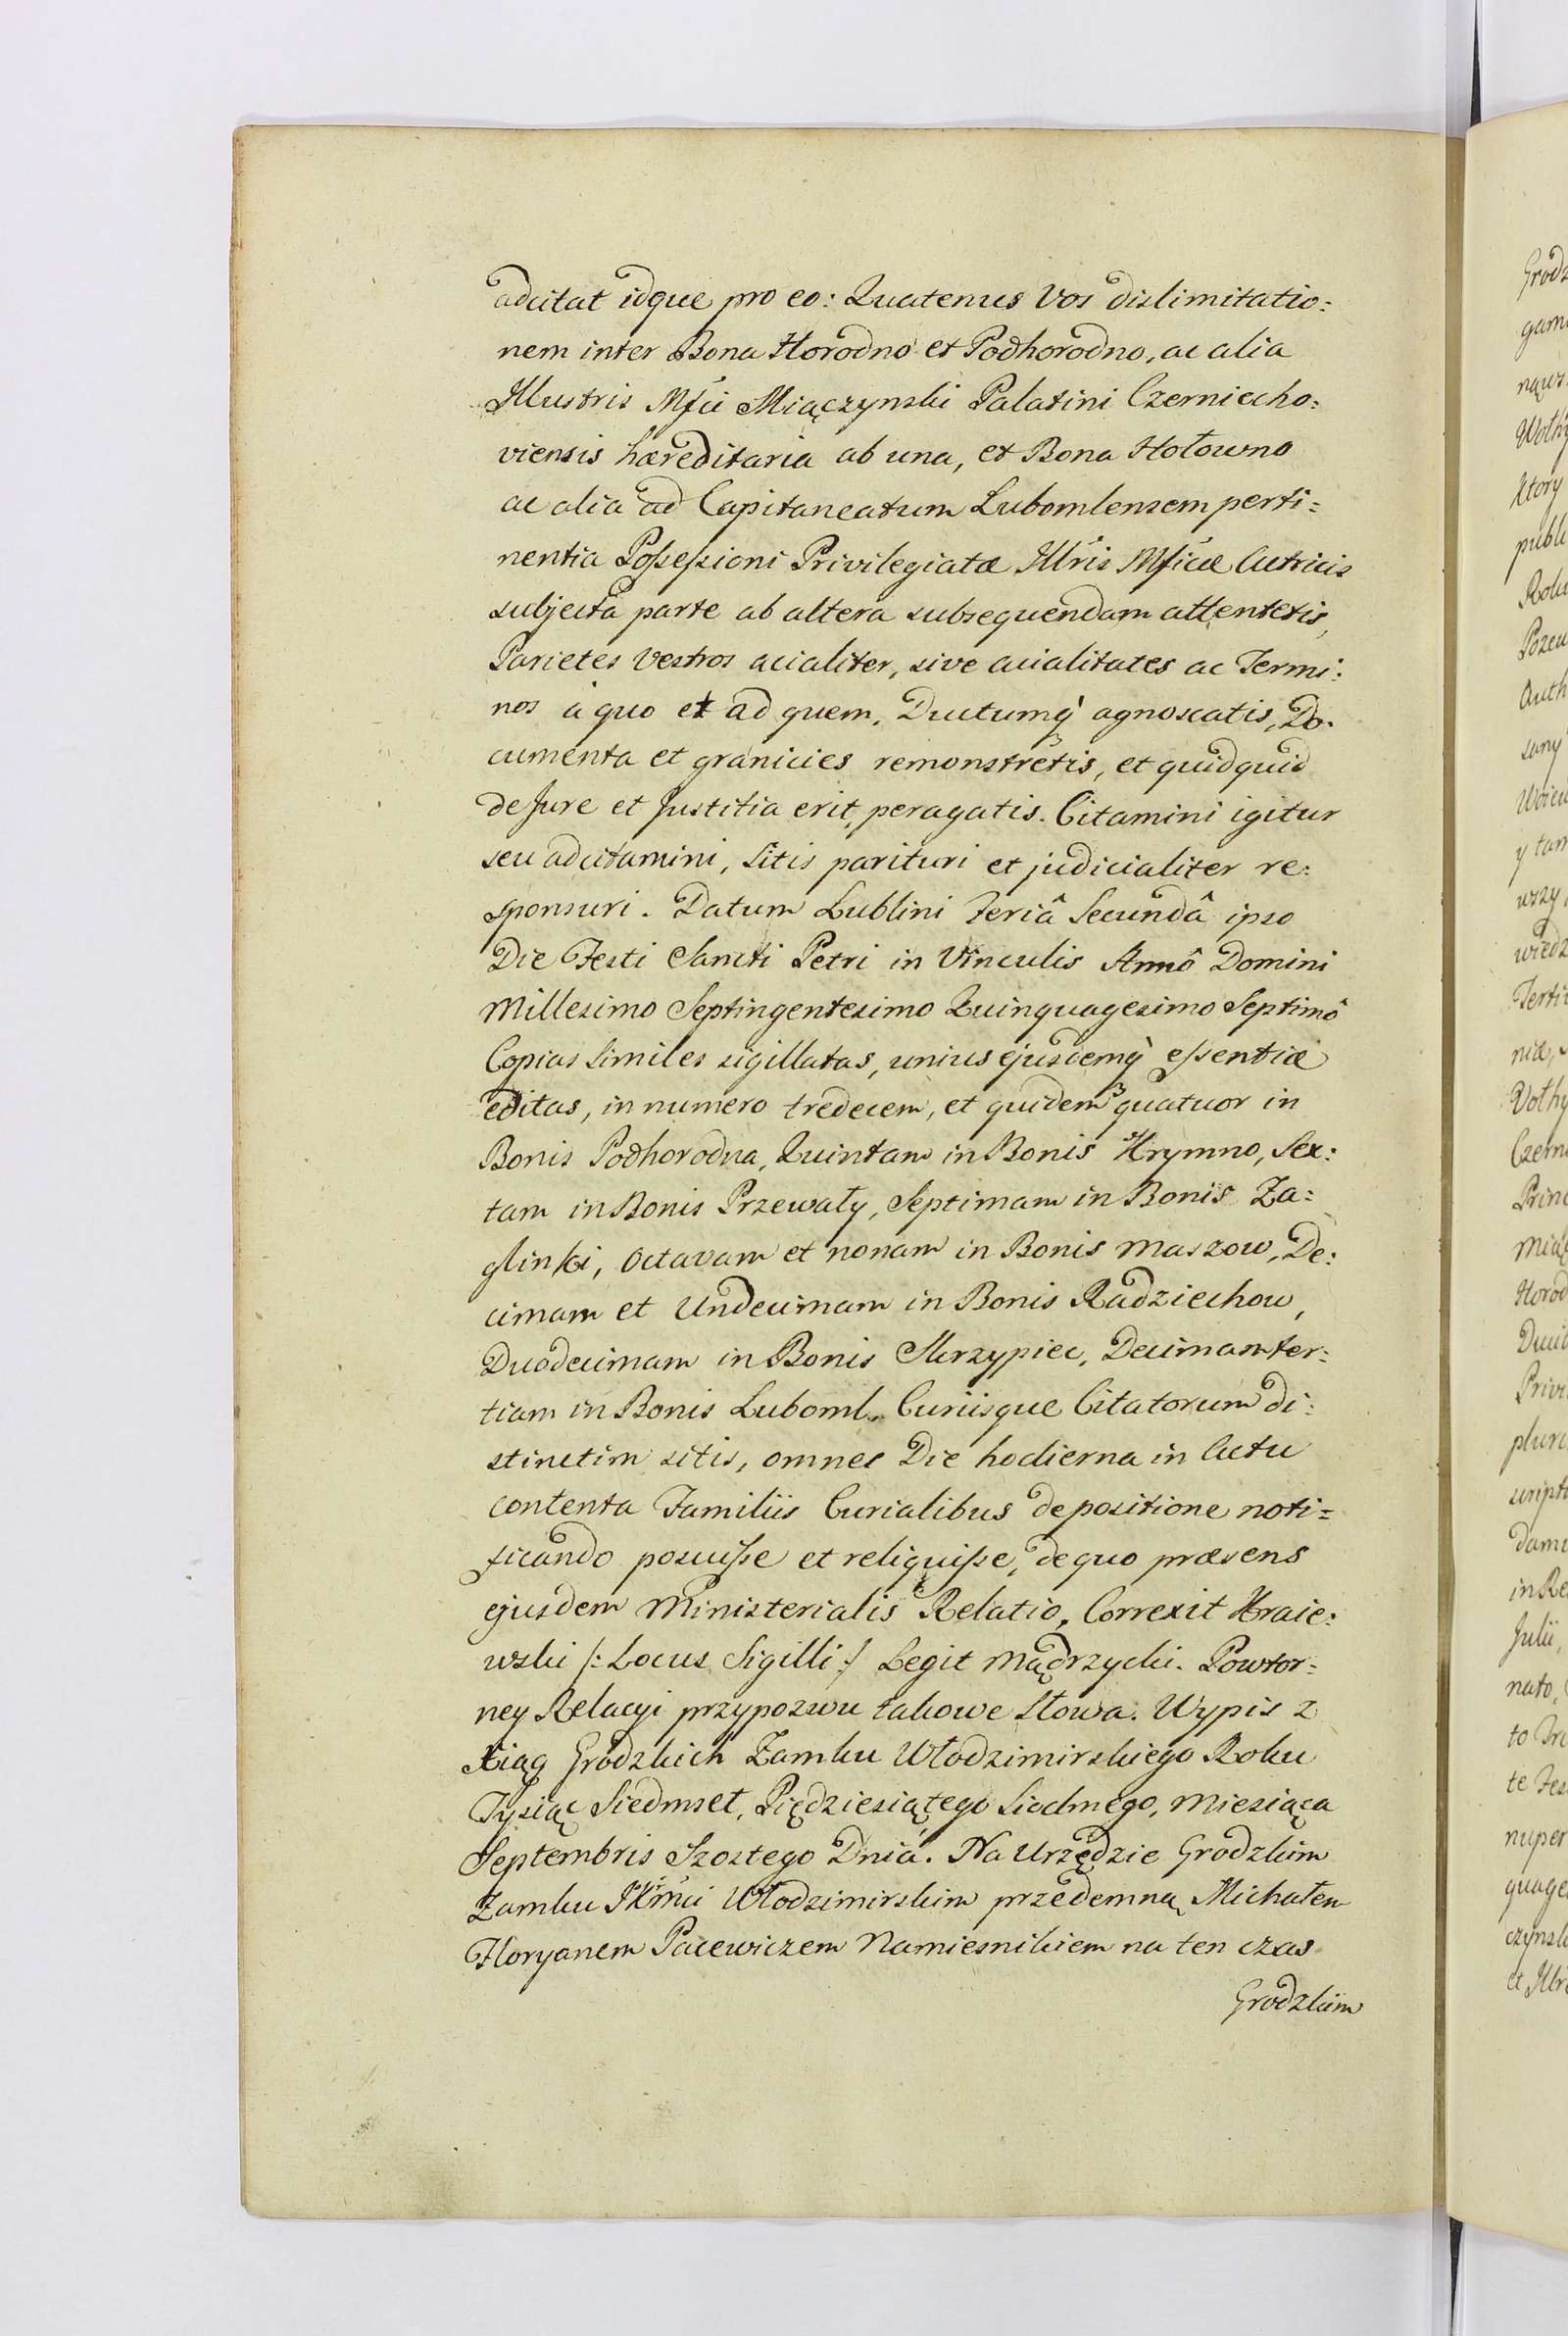 adcitat idque pro eo: Quatenus Vos dislimitatio:
nem inter Bona Horodno et Podhorodno, ac alia
Illustris Mfci Miączynski Palatini Czerniecho:
viensis hæreditaria ab una, et Bona Hołowno
ac alia ad Capitaneatum Lubomlensem perti=
nentia Possessioni Privilegiatæ Illris Mficæ Actricis
subjecta parte ab altera subsequendam attentetis,
Parietes vestros acialiter, sive acialitates ac Termi:
nos à quo et ad quem, Ductumq̀ agnoscatis, Do:
cumenta et granicies remonstretis, et quidquid
de Jure et Justitia erit, peragatis. Citamini igitur
seu adcitamini, sitis parituri et judicialiter re:
sponsuri. Datum Lublini feriâ Secundâ ipso
Die Festi Sancti Petri in Vinculis Annô Domini
Millesimo Septingentesimo Quinquagesimo Septimô
Copias similes sigillatas, unius ejusdemq̀ essentiæ
editas, in numero tredecem, et quidem quatuor in
Bonis Podhorodna, Quintam in Bonis Hrymno, Sex:
tam in Bonis Przewały, Septimam in Bonis Za=
glinki, Octavam et nonam in Bonis Maszow, De:
cimam et Undecimam in Bonis Radziechow,
Duodecimam in Bonis Skrzypiec, Decimamter:
tiam in Bonis Luboml, Curiisque Citatorum di:
stinctim sitis, omnes Die hodierna in Actu
contenta Familiis Curialibus depositione noti=
ficando posuisse et reliquisse, de quo præsens
ejusdem Ministerialis Relatio, Correxit Kraie:
wski /: Locus Sigilli :/ Legit Mądrzycki. Powtor=
ney Relacyi przypozwu takowe słowa. Wypis z
Xiąg Grodzkich Zamku Włodzimirskiego Roku
Tysiąc Siedmset, Pięćdziesiątego Siodmego, Miesiąca
Septembris Szostego Dnia. Na Urzędzie Grodzkim
Zamku JKmci Włodzimirskim przedemną Michałem
Floryanem Pacewiczem Namiesnikiem na ten czas
Grodzkim